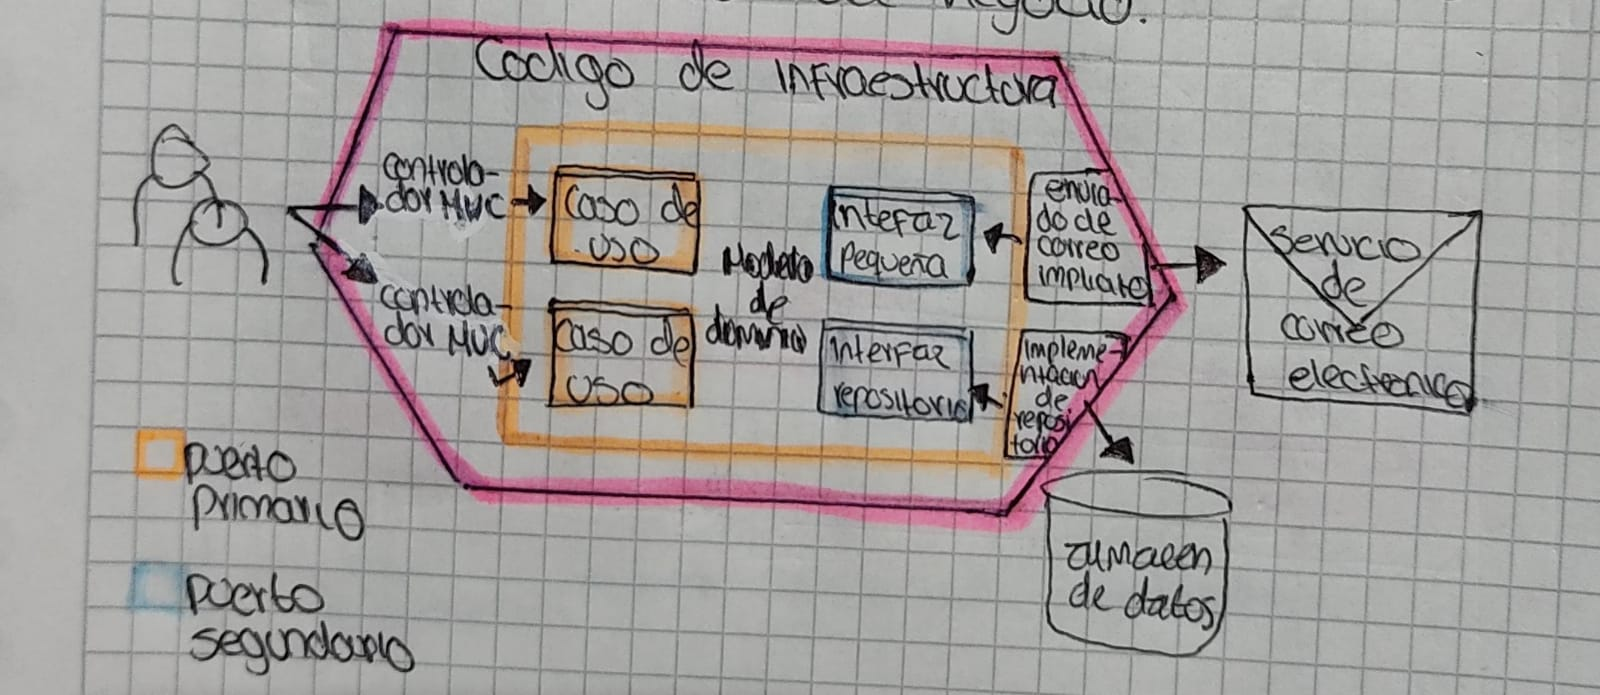 negocio.
Codigo de infraestructura
controla-
dor MVC
caso de
uso
controla-
dor MVC
caso de
uso
Modelo
de
dominio
Interfaz
pequeña
Interfaz
repositorio
envia-
do de
correo
impliate
impleme-
ntacion
de
reposi
torio
servicio
de
correo
electronico
almacen
de datos
puerto
primario
puerto
segundario